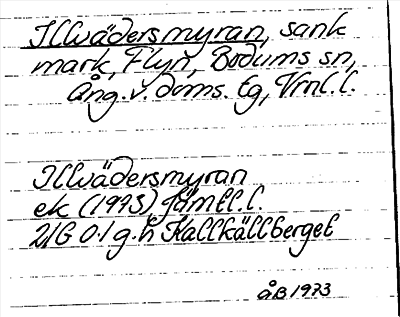 Illvädersmyran, sank
mark, Flyn, Bodums sn,
Ång. v. doms. tg, Vrnl. l.
Illvädersmyran
ek (1973) Jämtl. l.
21G 0 g. h Kallkällberget
ÅB 1973